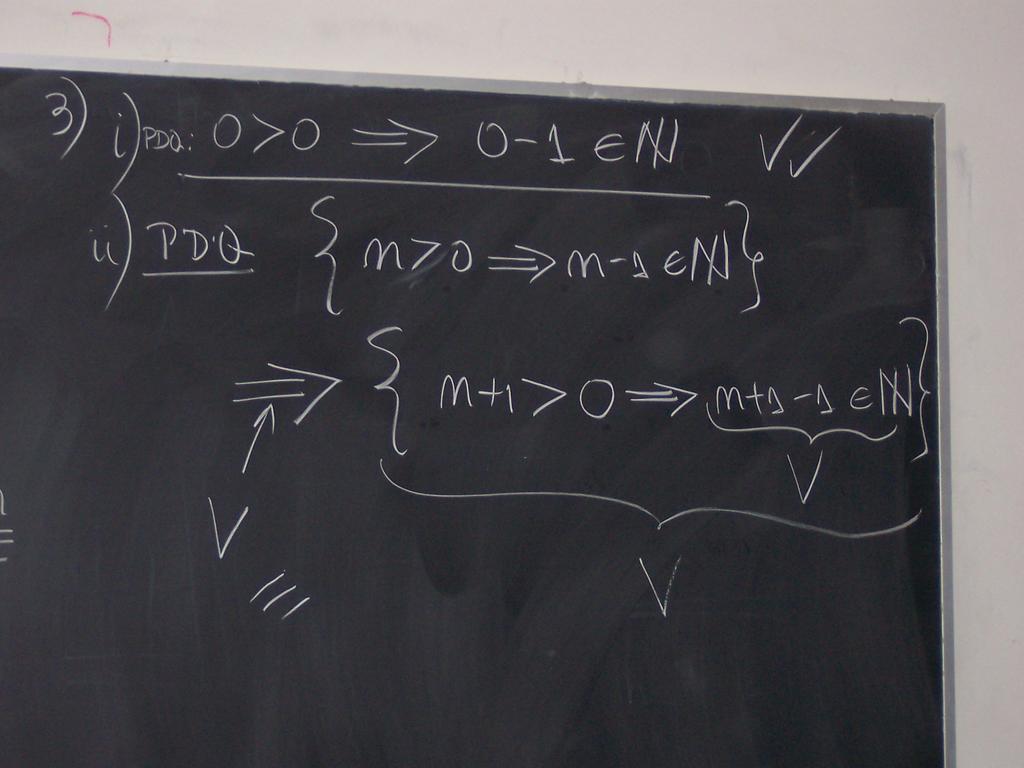 3) i) PDQ: 0 > 0 ⟹ 0 - 1 ∈ ℕ ✓✓
ii) PDQ { n > 0 ⟹ n - 1 ∈ ℕ }
⟹ { n + 1 > 0 ⟹ n + 1 - 1 ∈ ℕ }
V
V
V
///